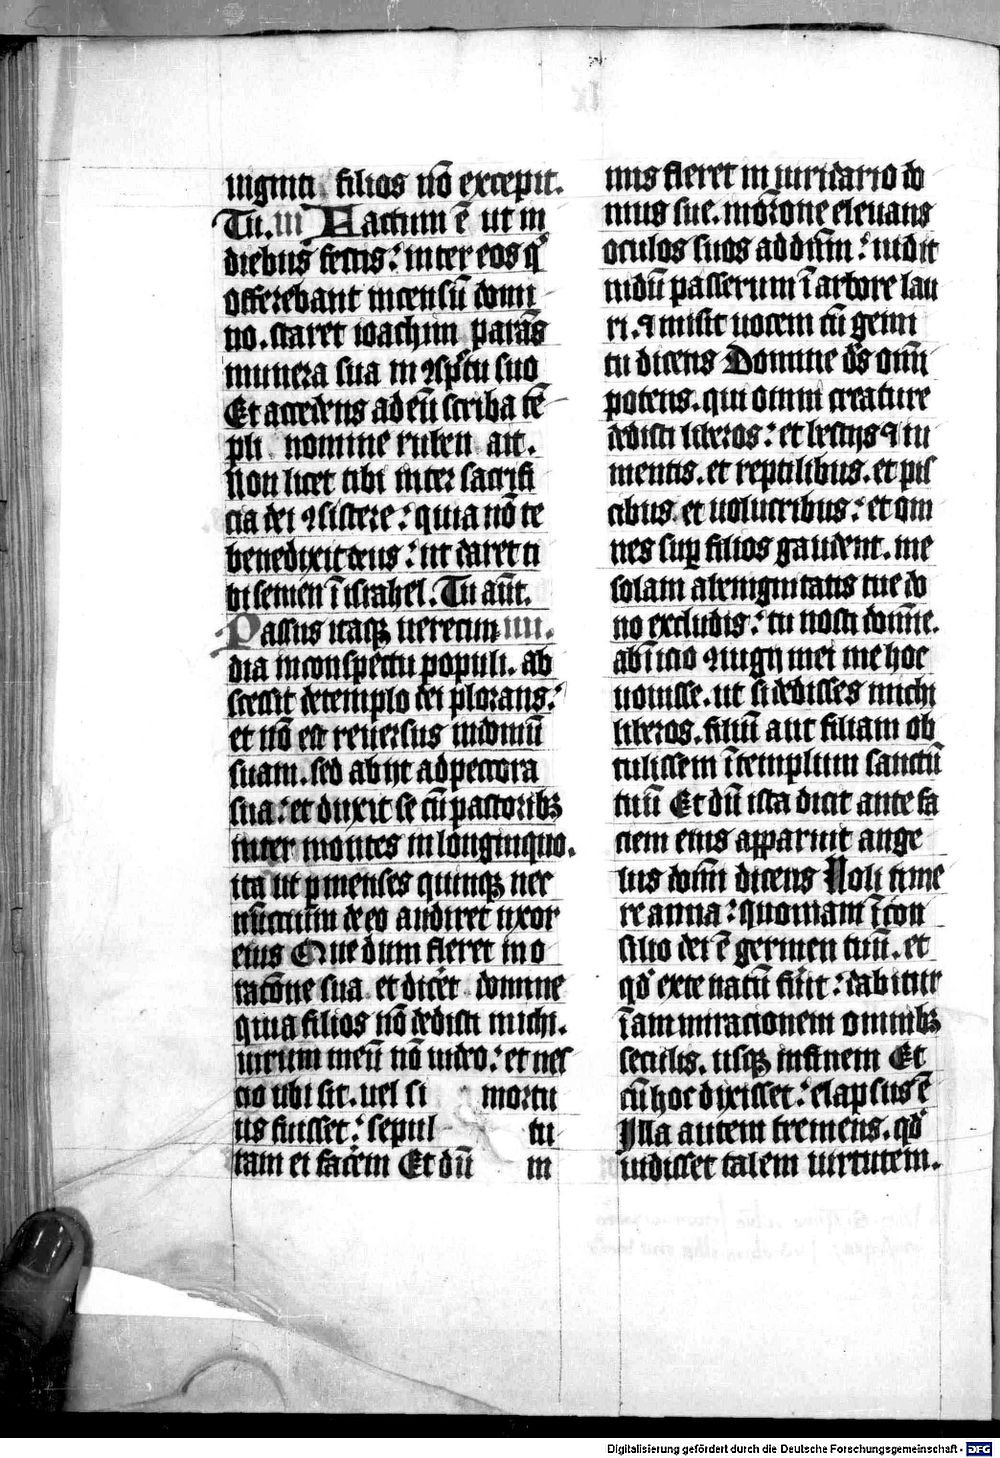 uiginti filios nō excepit.
Tu. iii Factum ē ut in
diebus festis: inter eos q͛
offerebant incensū domi
no. staret ioachim parās
munera sua in ꝯsp̄tu suo
Et accedens ad eū scriba tē
pli nomine ruben ait.
non licet tibi inter sacrifi
cia dei ꝯsistere: quia nō te
benedixit deus: ut daret ti
bi semen ī israhel. Tu aūt.
Passus itaqꝫ uerecun iiii.
dia in conspectu populi. ab
scessit de templo dei plorans:
et nō est reuersus in domū
suam. sed abijt ad pecora
sua: et duxit se cū pastoribꝫ
inter montes in longinquo.
ita ut ꝑ menses quinqꝫ nec
nūctium de eo audiret uxor
eius Que dum fleret in o
ratōne sua et dicēt domine
quia filios nō dedisti michi.
uirum meū nō uideo: et nes
cio ubi sit. uel si mortu
us fuisset: sepul tu
ram ei facēm Et dū in
mis fleret in uiridario do
mus sue. in orōne eleuans
oculos suos ad dn̄m: uidit
nidū passerum ī arbore lau
ri. ⁊ misit uocem cū gemi
tu dicens Domine ds̄ omī
potens. qui omni creature
dedisti liberos: et bestijs ⁊ iu
mentis. et reptilibus. et pis
cibus et uolucribus: et om
nes suꝑ filios gaudent. me
solam a benignitatis tue do
no excludis: tu nosti domīe.
ab īicio ꝯiugij mei me hoc
uouisse. ut si dedisses michi
liberos. filiū aut filiam ob
tulissem ī templum sanctū
tuū Et dū ista dicit ante fa
ciem eius apparuit ange
lus domī dicens Noli time
re anna: quoniam ī con
silio dei ē germen tuū. et
qd͛ ex te natū fu͛it: dabitur
ī ammiracionem omnibꝫ
seculis. usqꝫ in finem Et
cū hoc dixisset: elapsus ē
Illa autem tremens. qd͛
uidisset talem uirtutem.
Digitalisierung gefördert durch die Deutsche Forschungsgemeinschaft - DFG